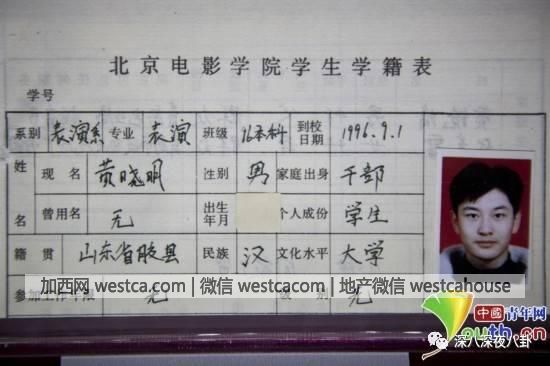 北京电影学院学生学籍表
学号
系别 表演系 专业 表演 班级 96本科 到校日期 1996.9.1
姓名 现名 黄晓明 性别 男 家庭出身 干部
曾用名 无 出生年月 个人成份 学生
籍贯 山东省胶县 民族 汉 文化水平 大学
参加工作年限 无 级别 无
加西网 westca.com | 微信 westcacom | 地产微信 westcahouse
中國青年网
Youth.cn
深八深夜八卦